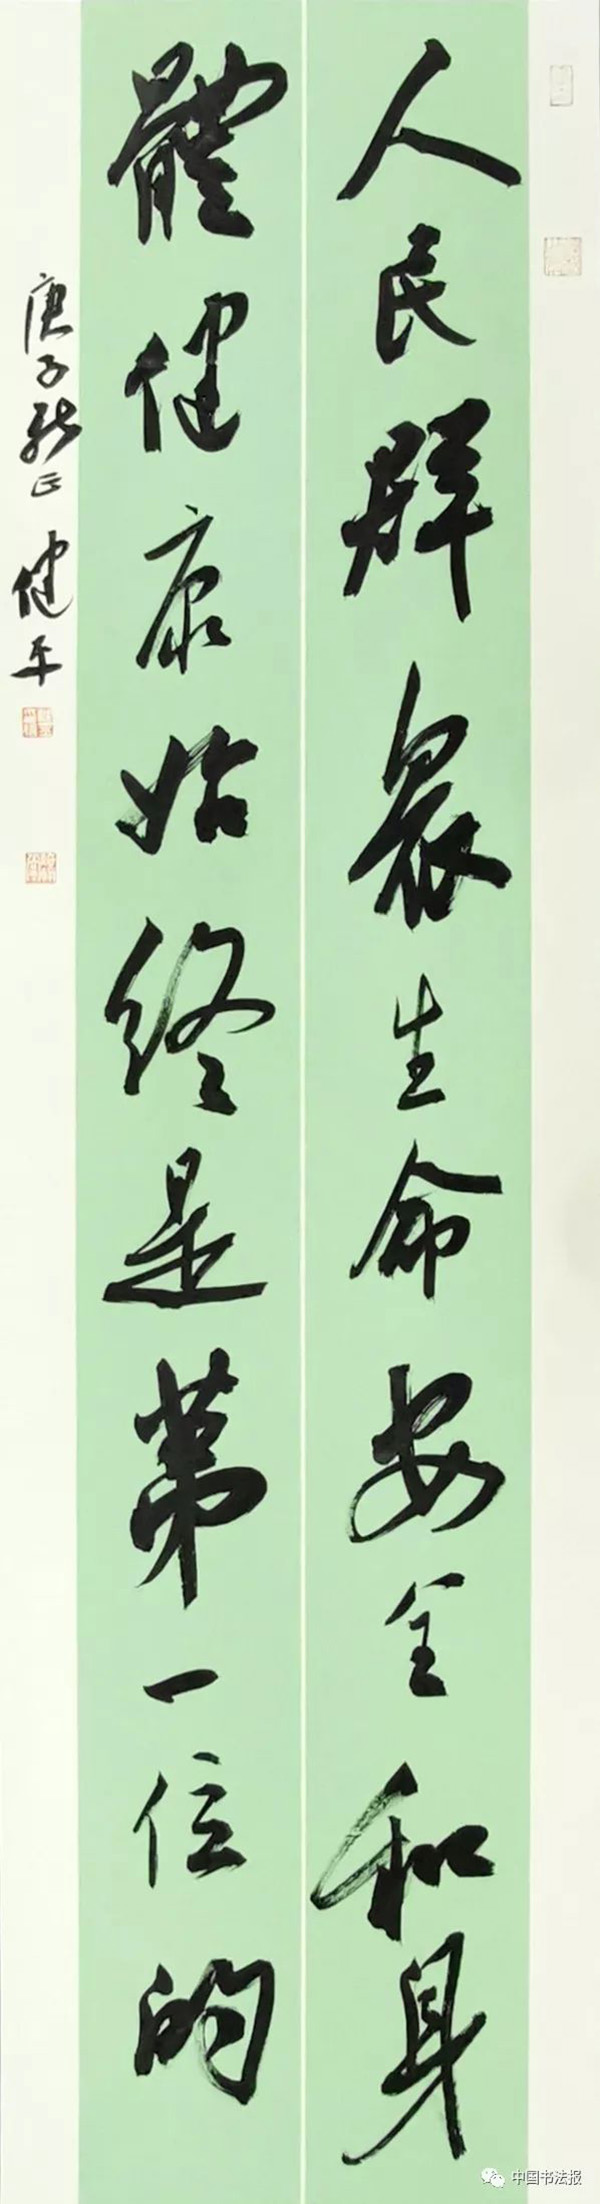 人民群衆生命安全和身
體健康始終是第一位的
庚子新正 健平
中国书法报